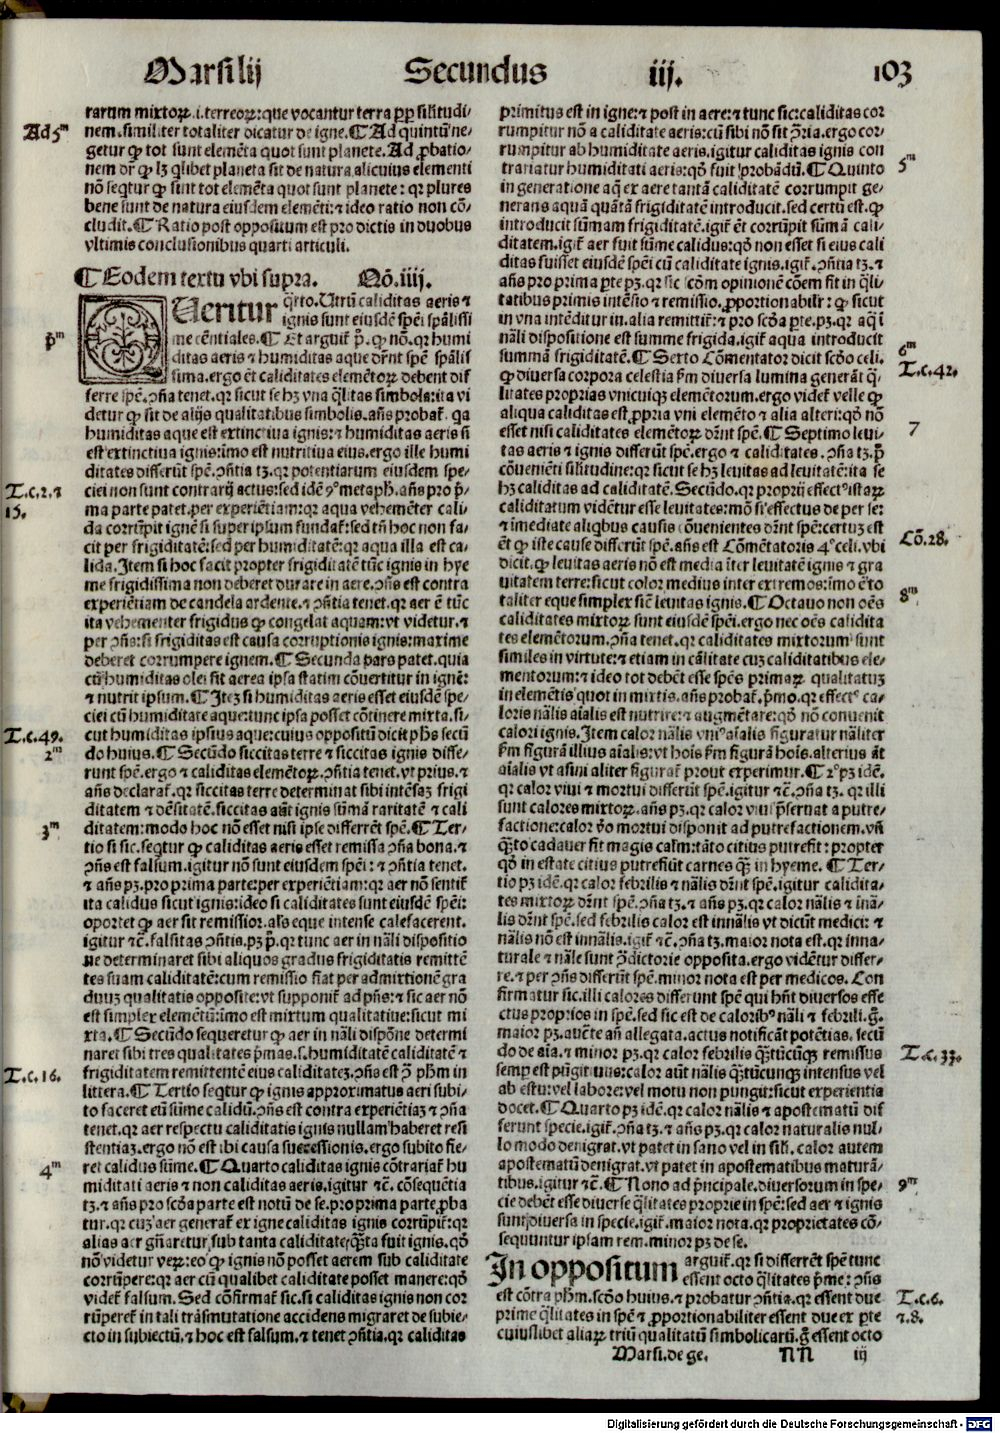 Marsilij Secundus iij. 103
rarum mixtoꝝ.i.terreoꝝ: que vocantur terra ꝓpꝑ silitudi-
nem. similiter totaliter dicatur de igne. ¶ Ad quintū ne-
Ad 5ᵐ
getur ꝙ tot sunt elemēta quot sunt planete. Ad ꝓbatio-
nem dr̄ ꝙ lꝫ qͥlibet planeta sit de natura alicuius elementi
nō seqtur ꝙ sint tot elemēta quot sunt planete: qꝛ plures
bene sunt de natura eiusdem elemēti: ⁊ ideo ratio non cō-
cludit. ¶ Ratio post oppositum est pro dictis in duobus
vltimis conclusionibus quarti articuli.
¶ Eodem textu vbi supra. Qō. iiij.
Ueritur qͣrto. Utrū caliditas aeris ⁊
ignis sunt eiusdē spēi spālissi
me cēntiales. ¶ Et arguit̄ pͥ. ꝙ nō. qꝛ humi
pͥᵐ
ditas aeris ⁊ humiditas aque dr̄nt spē spālis
sima. ergo ēt caliditates elemētoꝝ debent dif
ferre spē. ꝯña tenet. qꝛ sicut se hꝫ vna qͥlitas simbola: ita vi
detur ꝙ sit de alijs qualitatibus simbolis. añs probat̄. qa
humiditas aque est extinctiua ignis: ⁊ humiditas aeris nō
est extinctiua ignis: imo est nutritiua eius. ergo ille humi
ditates differūt spē. ꝯñtia tꝫ. qꝛ potentiarum eiusdem spe-
ciei non sunt contrarij actus: sed idē 9ᵒ metaph. añs pro pͥ-
T.c.2.⁊
15.
ma parte patet. per experiētiam: qꝛ aqua vehemēter cali-
da corrūpit ignē si super ipsum fundat̄: sed tn̄ hoc non fa-
cit per frigiditatē: sed per humiditatē: qꝛ aqua illa est ca-
lida. Item si hoc facit propter frigiditatē tūc ignis in hye
me frigidissima non deberet durare in aere. ꝯñs est contra
experiētiam de candela ardente. ⁊ ꝯñtia tenet. qꝛ aer ē tūc
ita vehementer frigidus ꝙ congelat aquam: vt videtur. ⁊
per ꝯñs: si frigiditas est causa corruptionis ignis: maxime
deberet corrumpere ignem. ¶ Secunda pars patet. quia
cū humiditas olei sit aerea ipsa statim cōuertitur in ignē:
⁊ nutrit ipsum. ¶ Iteꝫ si humiditas aeris esset eiusdē spe-
ciei cū humiditate aque: tunc ipsa posset cōtinere mixta. si-
cut humiditas ipsius aque: cuius oppositū dicit phs secū
T.c.49.
do huius. ¶ Secūdo siccitas terre ⁊ siccitas ignis diffe-
2ᵐ
runt spē. ergo ⁊ caliditas elemētoꝝ. ꝯñtia tenet. vt prius. ⁊
añs declarat̄. qꝛ siccitas terre determinat sibi intēsaꝫ frigi
ditatem ⁊ dēsitatē. siccitas aūt ignis sūmā raritatē ⁊ cali
ditatem: modo hoc nō esset nisi ipse differrēt spē. ¶ Ter-
3ᵐ
tio si sic. seqtur ꝙ caliditas aeris esset remissa ꝯña bona. ⁊
ꝯñs est falsum. igitur nō sunt eiusdem spēi: ⁊ ꝯñtia tenet.
⁊ añs pꝫ. pro prima parte: per experiētiam: qꝛ aer nō sentit̄
ita calidus sicut ignis: ideo si caliditates sunt eiusdem spēi:
oportet ꝙ aer sit remissior. als eque intense calefacerent.
igitur ⁊ē. falsitas ꝯñtis. pꝫ pͥ. qꝛ tunc aer in nāli dispositio
ne determinaret sibi aliquos gradus frigiditatis remittē
tes suam caliditatē: cum remissio fiat per admixtionē gra
duuꝫ qualitatis opposite: vt supponit̄ ad pn̄s: ⁊ sic aer nō
est simplex elemētū: imo est mixtum qualitatiue: sicut mi
xta. ¶ Secūdo sequeretur ꝙ aer in nāli dispōne determi
naret sibi tres qualitates pͥmas. s. humiditatē caliditatē ⁊
frigiditatem remittentē eius caliditateꝫ. ꝯñs est ꝯͣ phm in
T.c.16.
littera. ¶ Tertio seqtur ꝙ ignis approximatus aeri subi-
to faceret eū sūme calidū. ꝯñs est contra experiētiaꝫ ⁊ ꝯña
tenet. qꝛ aer respectu caliditatis ignis nullam haberet resi
stentiaꝫ. ergo nō est ibi causa successionis. ergo subito fie-
ret calidus sūme. ¶ Quarto caliditas ignis cōtrariat̄ hu
4ᵐ
miditati aeris ⁊ non caliditas aeris. igitur ⁊ē. cōsequētia
tꝫ. ⁊ añs pro scōa parte est notū de se. pro prima parte ꝓba
tur. qꝛ cuꝫ aer generat̄ ex igne caliditas ignis corrūpit̄: qꝛ
alias aer gn̄aretur sub tanta caliditate qͣꝫta fuit ignis. qd̄
nō videtur veꝝ: eo ꝙ ignis nō posset aerem sub caliditate
corrūpere: qꝛ aer cū qualibet caliditate posset manere: qd̄
videt̄ falsum. Sed cōfirmat̄ sic. si caliditas ignis non cor
rūperet̄ in tali trāsmutatione accidens migraret de subie-
cto in subiectū. ⁊ hoc est falsum. ⁊ tenet ꝯñtia. qꝛ caliditas
primitus est in igne: ⁊ post in aere: ⁊ tunc sic: caliditas cor
rumpitur nō a caliditate aeris: cū sibi nō sit ꝯria. ergo cor-
rumpitur ab humiditate aeris. igitur caliditas ignis con
trariatur humiditati aeris: qd̄ fuit probādū. ¶ Quinto
5ᵐ
in generatione aq̄ ex aere tantā caliditatē corrumpit ge-
nerans aquā quātā frigiditatē introducit. sed certū est. ꝙ
introducit sūmam frigiditatē. igit̄ ēt corrūpit sūmā cali-
ditatem. igit̄ aer fuit sūme calidus: qd̄ non esset si eius cali
ditas fuisset eiusdē spēi cū caliditate ignis. igit̄. ꝯñtia tꝫ. ⁊
añs pro prima pte pꝫ. qꝛ sic scōm opinionē cōem fit in qͥli-
tatibus primis intēsio ⁊ remissio. ꝓportionabilr̄: ꝙ sicut
in vna intēditur in alia remittit̄: ⁊ pro scōa pte. pꝫ. qꝛ aq̄ ī
nāli dispositione est summe frigida. igit̄ aqua introducit
summā frigiditatē. ¶ Sexto Cōmentator dicit scōo celi.
6ᵐ
T.c.42.
ꝙ diuersa corpora celestia ẜm diuersa lumina generāt qͥ-
litates proprias vnicuiqꝫ elemētorum. ergo videt̄ velle ꝙ
aliqua caliditas est ꝓpria vni elemēto ⁊ alia alteri: qd̄ nō
esset nisi caliditates elemētoꝝ dr̄nt spē. ¶ Septimo leui-
7
tas aeris ⁊ ignis differūt spē. ergo ⁊ caliditates. ꝯña tꝫ. pͥ
cōueniēti silitudine: qꝛ sicut se hꝫ leuitas ad leuitatē: ita se
hꝫ caliditas ad caliditatē. Secūdo. qꝛ proprij effectꝰ istaꝝ
caliditatum vidētur esse leuitates: mō si effectus de per se:
⁊ imediate aliqͥbus causis cōuenientes dr̄nt spē: certuꝫ est
ēt ꝙ iste cause differūt spē. añs est Cōmētatoris 4ᵒ celi. vbi
Cō.28.
dicit. ꝙ leuitas aeris nō est media iter leuitatē ignis ⁊ gra
uitatem terre: sicut color medius inter extremos: imo ē to
taliter eque simplex sic̄ leuitas ignis. ¶ Octauo non oēs
8ᵐ
caliditates mixtoꝝ sunt eiusdem spēi. ergo nec oēs calidita
tes elemētorum. ꝯña tenet. qꝛ caliditates mixtorum sunt
similes in virtute: ⁊ etiam in cālitate cuꝫ caliditatibus ele-
mentorum: ⁊ ideo tot debēt esse spēs primaꝝ qualitatuꝫ
in elemētis quot in mixtis. añs probat̄. pͥmo. qꝛ effectꝰ ca-
loris nālis aīalis est nutrire: ⁊ augmētare: qd̄ nō conuenit
calori ignis. Item calor nālis vniꝰ aīalis figuratur nāliter
ẜm figurā illius aīalis: vt hoīs ẜm figurā hoīs. alterius āt
aīalis vt asini aliter figurat̄ prout experimur. ¶ 2ᵒ pꝫ idē.
qꝛ calor viui ⁊ mortui differūt spē. igitur ⁊ē. ꝯña tꝫ. qꝛ illi
sunt calores mixtoꝝ. añs pꝫ. qꝛ calor viui pͥseruat a putre-
factione: calor vͦo mortui disponit ad putrefactionem. vn̄
qͣꝫto cadauer fit magis calm̄: tāto citius putrefit: propter
qd̄ in estate citius putrefiūt carnes qͣꝫ in hyeme. ¶ Ter-
tio pꝫ idē. qꝛ calor febrilis ⁊ nālis dr̄nt spē. igitur calidita-
tes mixtoꝝ dr̄nt spē. ꝯña tꝫ. ⁊ añs pꝫ. qꝛ calor nālis ⁊ inā-
lis dr̄nt spē. sed febrilis calor est innālis vt dicūt medici: ⁊
nālis nō est innālis. igit̄ ⁊ē. ꝯña tꝫ. maior nota est. qꝛ inna-
turale ⁊ nāle sunt ꝯͣdictorie opposita. ergo vidētur differ-
re. ⁊ per ꝯñs differūt spē. minor nota est per medicos. Con
firmatur sic. illi calores differunt spē qui hn̄t diuersos effe
ctus proprios in spē. sed sic est de caloribꝰ nāli ⁊ febrili. gͦ.
maior pꝫ. auctē añ allegata. actus notificāt potētias. secū
T.c.33.
do de aīa. ⁊ minor pꝫ. qꝛ calor febrilis qͣꝫtūcūqꝫ remissus
semp est pūgitiuus: calor aūt nālis qͣꝫtūcunqꝫ intensus vel
ab estu: vel labore: vel motu non pungit: sicut experientia
docet. ¶ Quarto pꝫ idē. qꝛ calor nālis ⁊ apostematū dif
ferunt specie. igit̄. ꝯña tꝫ. ⁊ añs pꝫ. qꝛ calor naturalis nul-
lo modo denigrat. vt patet in sano vel in sili. calor autem
apostematū denigrat. vt patet in apostematibus maturā-
tibus. igitur ⁊ē. ¶ Nono ad pͥncipale. diuersorum in spe-
9ᵐ
cie debēt esse diuerse qͥlitates proprie in spē: sed aer ⁊ ignis
sunt diuersa in specie. igit̄. maior nota. qꝛ proprietates cō-
sequuntur ipsam rem. minor pꝫ de se.
In oppositum arguit̄. qꝛ si differrēt spē tunc
essent octo qͥlitates pͥme: ꝯñs
est cōtra phm. scōo huius. ⁊ probatur ꝯñtia. qꝛ essent due
T.c.6.
⁊.8.
prime qͥlitates in spē ⁊ ꝓportionabiliter essent due ex pte
cuiuslibet aliaꝝ triū qualitatū simbolicarū. gͦ essent octo
Marsi. de ge. NN iij
Digitalisierung gefördert durch die Deutsche Forschungsgemeinschaft - DFG